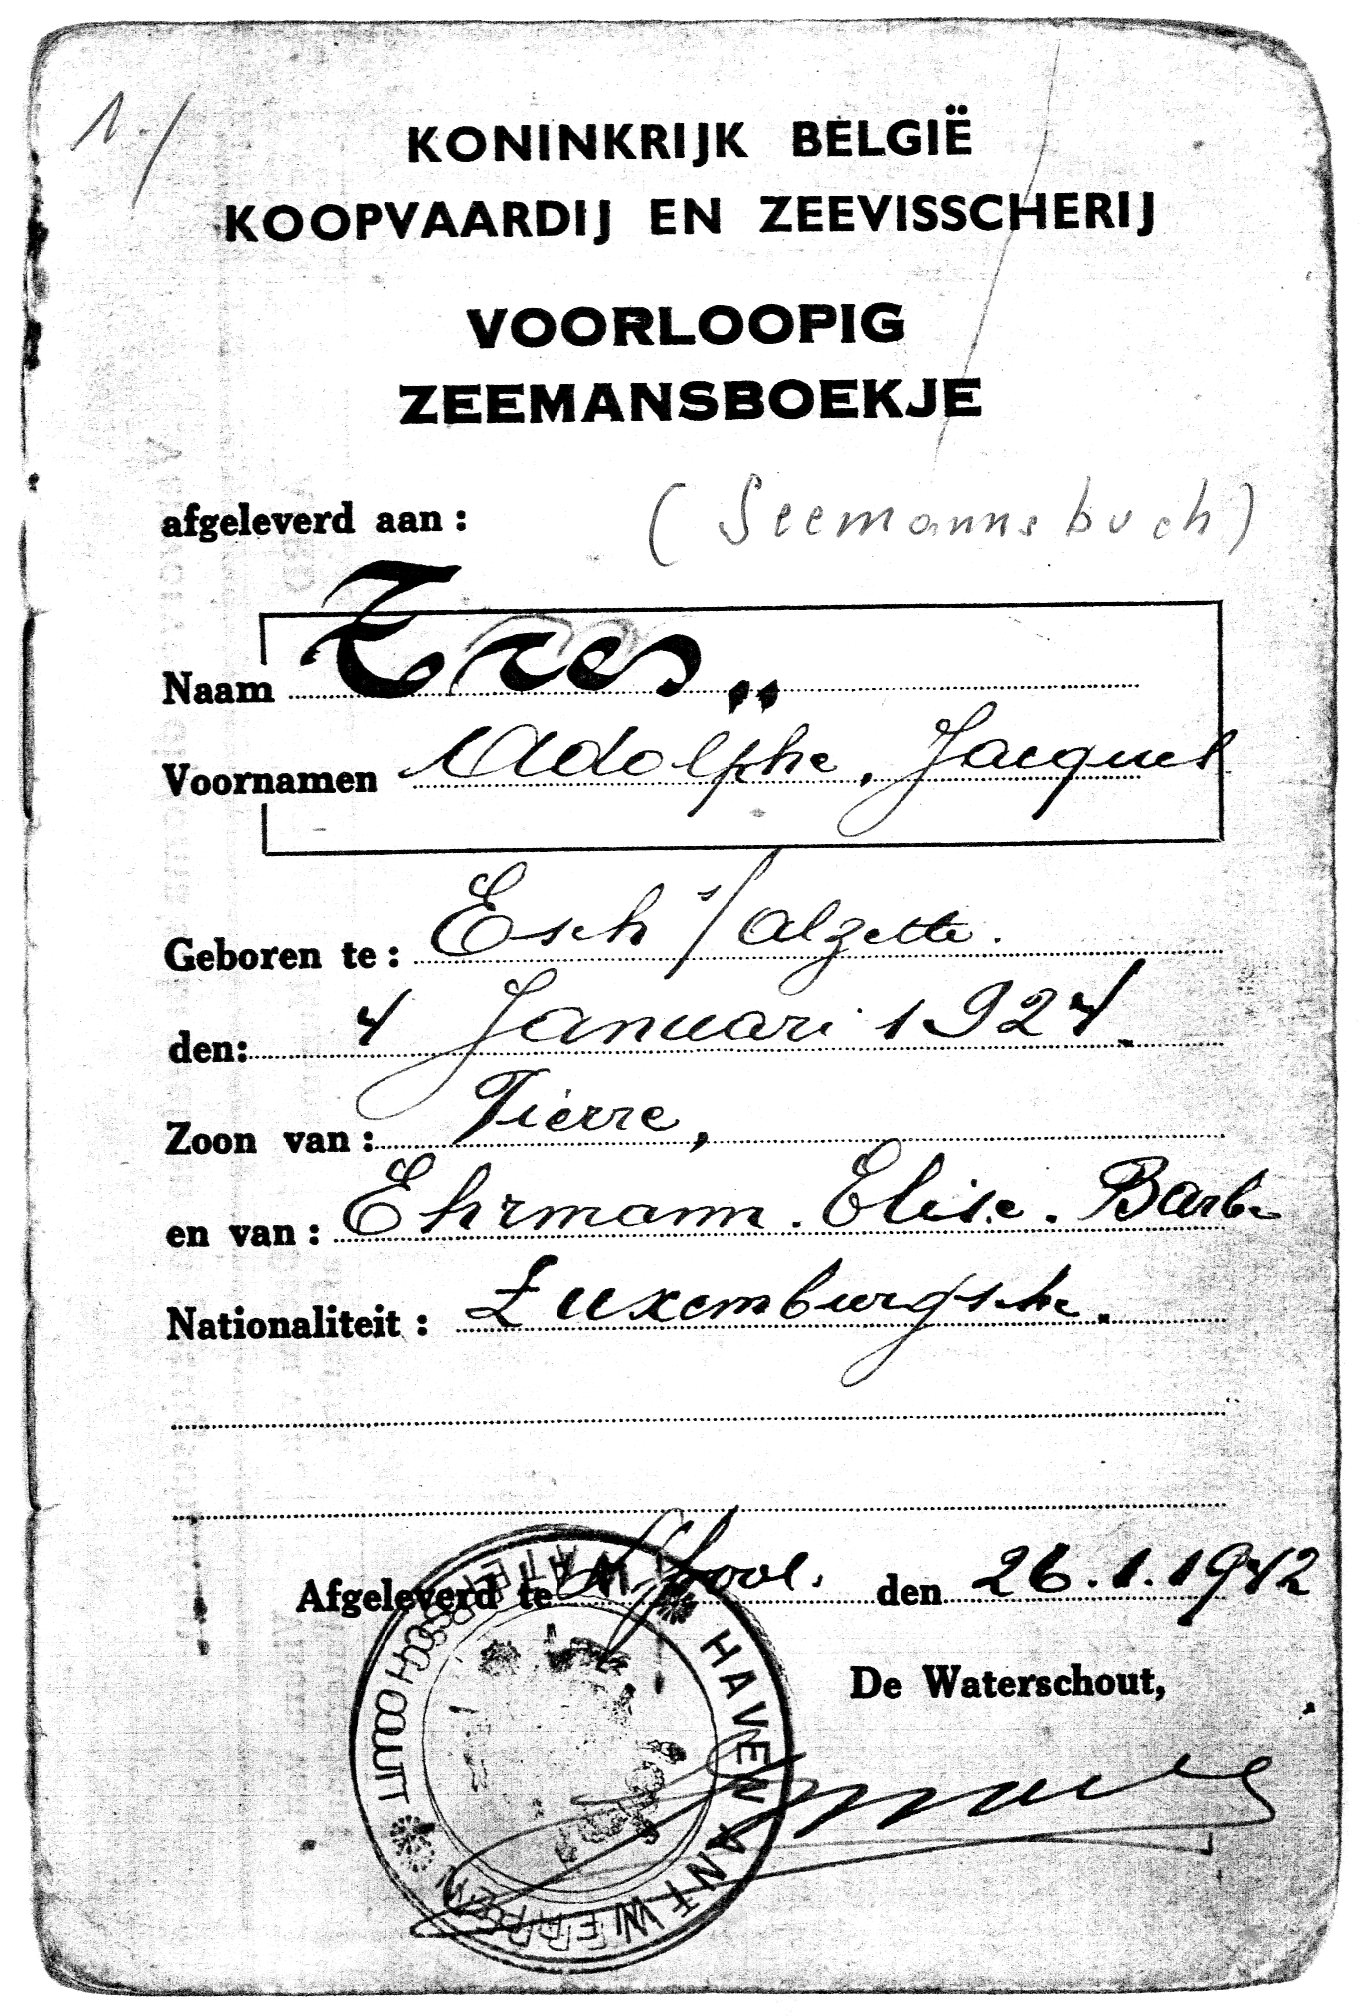 1./
KONINKRIJK BELGIË
KOOPVAARDIJ EN ZEEVISSCHERIJ
VOORLOOPIG
ZEEMANSBOEKJE
afgeleverd aan : (Seemannsbuch)
Naam Kres
Voornamen Adolphe, Jacques
Geboren te : Esch s/Alzette.
den: 4 Januari 1924.
Zoon van : Pierre,
en van : Ehrmann. Elise. Barbe
Nationaliteit : Luxemburgsche.
Afgeleverd te den 26.1.1942
De Waterschout,
WATERSCHOUT HAVEN ANTWERPEN